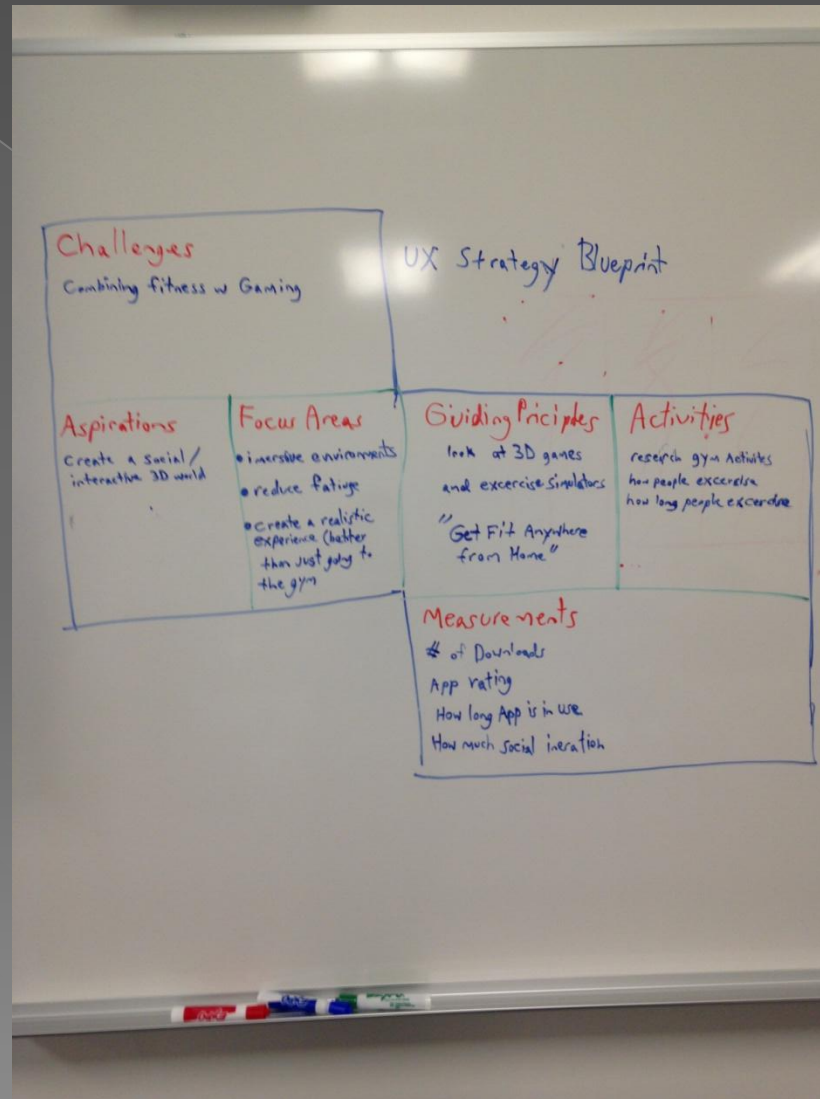 UX Strategy Blueprint
Challenges
Combining fitness w Gaming
Aspirations
Create a social/
interactive 3D world
Focus Areas
• imersive environments
• reduce fatiuge
• create a realistic
experience (better
than just going to
the gym
Guiding Priciples
look at 3D games
and excercise simulators
"Get Fit Anywhere
from Home"
Activities
research gym Activites
how people excercise
how long people excercise
Measurements
# of Downloads
App rating
How long App is in use
How much social ineration